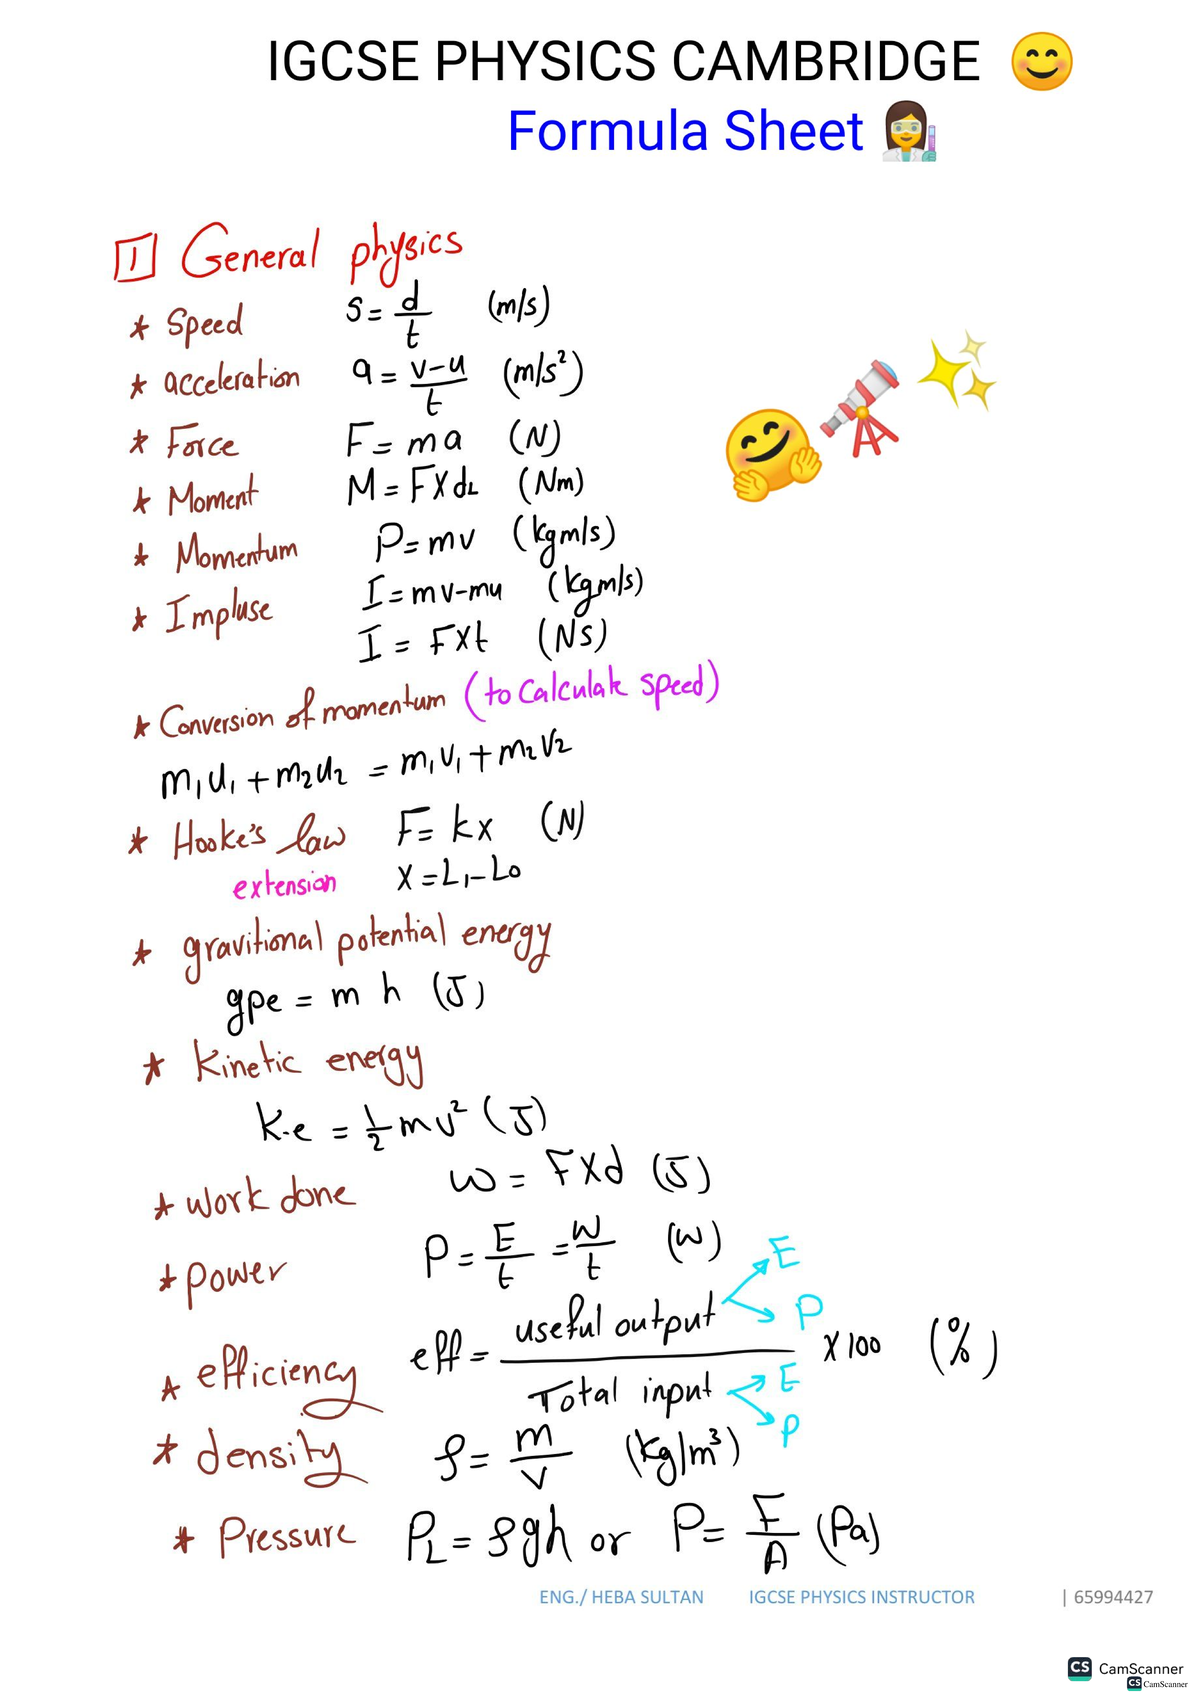 IGCSE PHYSICS CAMBRIDGE 😊
Formula Sheet 👩‍🔬
1 General physics
* Speed s = d/t (m/s)
* acceleration a = v-u/t (m/s²)
* Force F = ma (N)
* Moment M = F x d⊥ (Nm)
* Momentum P = mv (kgm/s)
* Impluse I = mv-mu (kgm/s)
I = F x t (NS)
* Conversion of momentum (to Calculate speed)
m₁u₁ + m₂u₂ = m₁v₁ + m₂v₂
* Hooke's law F = kx (N)
extension x = L₁ - L₀
* gravitional potential energy
gpe = m h (J)
* Kinetic energy
K.e = ½mv² (J)
* work done W = F x d (J)
* power P = E/t = W/t (W)
* efficiency eff = useful output E P / Total input E P x 100 (%)
* density ρ = m/v (kg/m³)
* Pressure P_L = ρgh or P = F/A (Pa)
ENG./ HEBA SULTAN IGCSE PHYSICS INSTRUCTOR | 65994427
CS CamScanner
CS CamScanner